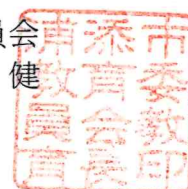 員会
健
浦添市
教育委
員会教
育長印